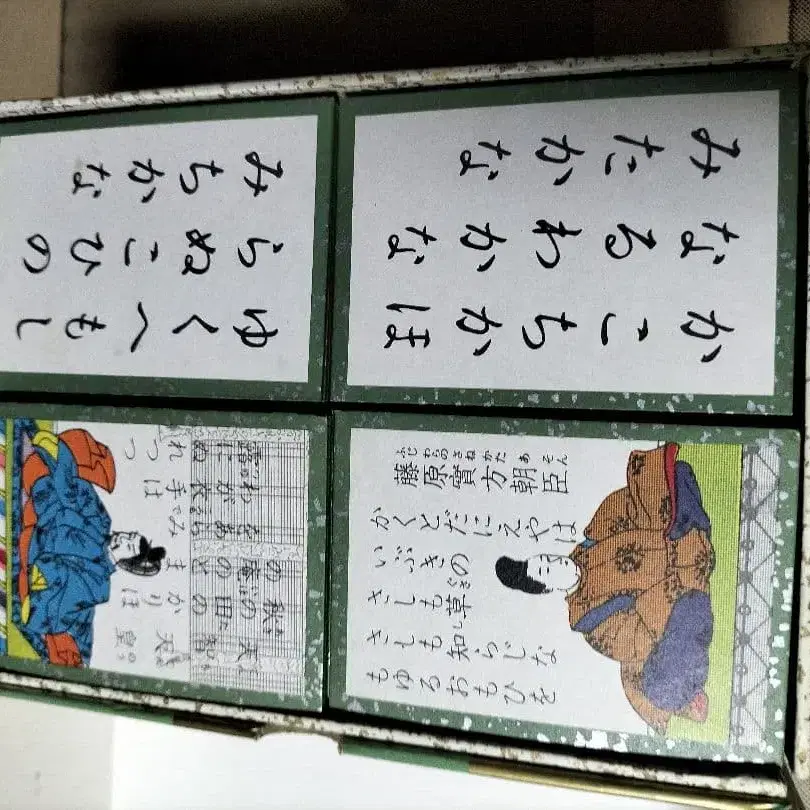 かこちかほ
なるわかな
みたかな
ゆくへもし
らぬこひの
みちかな
ふじわらのさねかたあそん
藤原實方朝臣
かくとだにえやは
いぶきの
さしも草
さしも知らじな
もゆるおもひを
天智天皇
秋の田の
かりほ
の庵の
とま
をあらみ
わが衣手は
露に
ぬれつつ